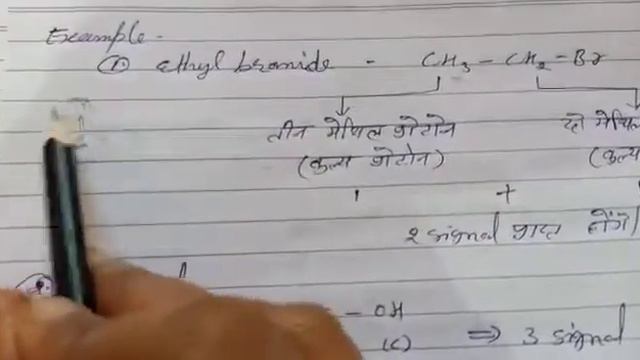 Example -
① ethyl bromide - CH3 - CH2 - Br
तीन मेथिल प्रोटोन दो
(तुल्य प्रोटोन) (तुल्य
1 +
2 signal प्राप्त होंगे
- OH
(c) ⇒ 3 signal